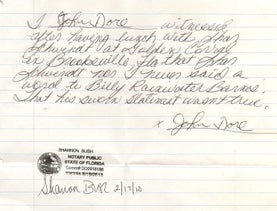 I John Dore witnessed
after having lunch with Shar
Shwindt at Golden Corral
in Brooksville Fla that Shar
Shwindt nor I never said a
word to Billy Barnes.
That his sworn statement wasn't true.
x John Dore
SHANNON BUSH
NOTARY PUBLIC
STATE OF FLORIDA
Shannon Bush 2/17/10